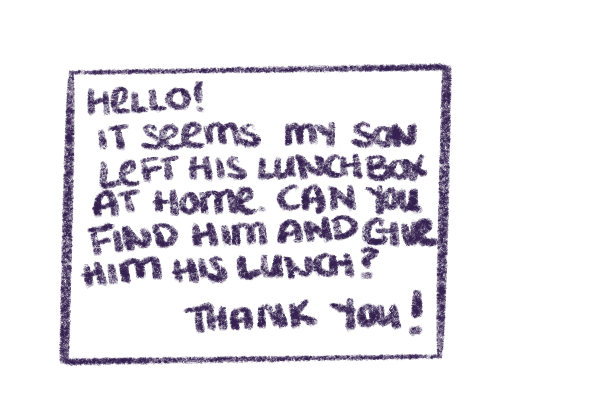 Hello!
IT seems my SON
LeFT HIS LUNCHBOX
AT Home. CAN You
FIND HIM AND GIVE
HIM HIS LUNCH?
THANK YOU!